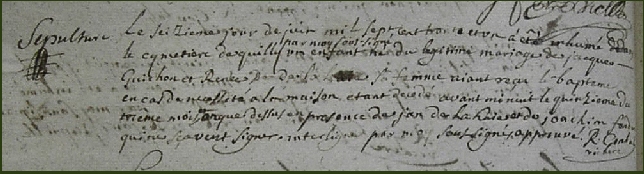 Sepulture Le seizieme jour de juin mil sept cent trante et un a été inhumé dans
le cymetiere de quilli par moy soussigné un enfant né du legitime mariage de jacques
Guichon et Renee sa femme aiant reçu le baptême
en cas de necessité a la maison etant decedé avant minuit le quinzieme du
meme mois an que dessus en presence de jan de la haie et de joachim
qui ne scavent signer interligne par moy soussigné approuvé R.